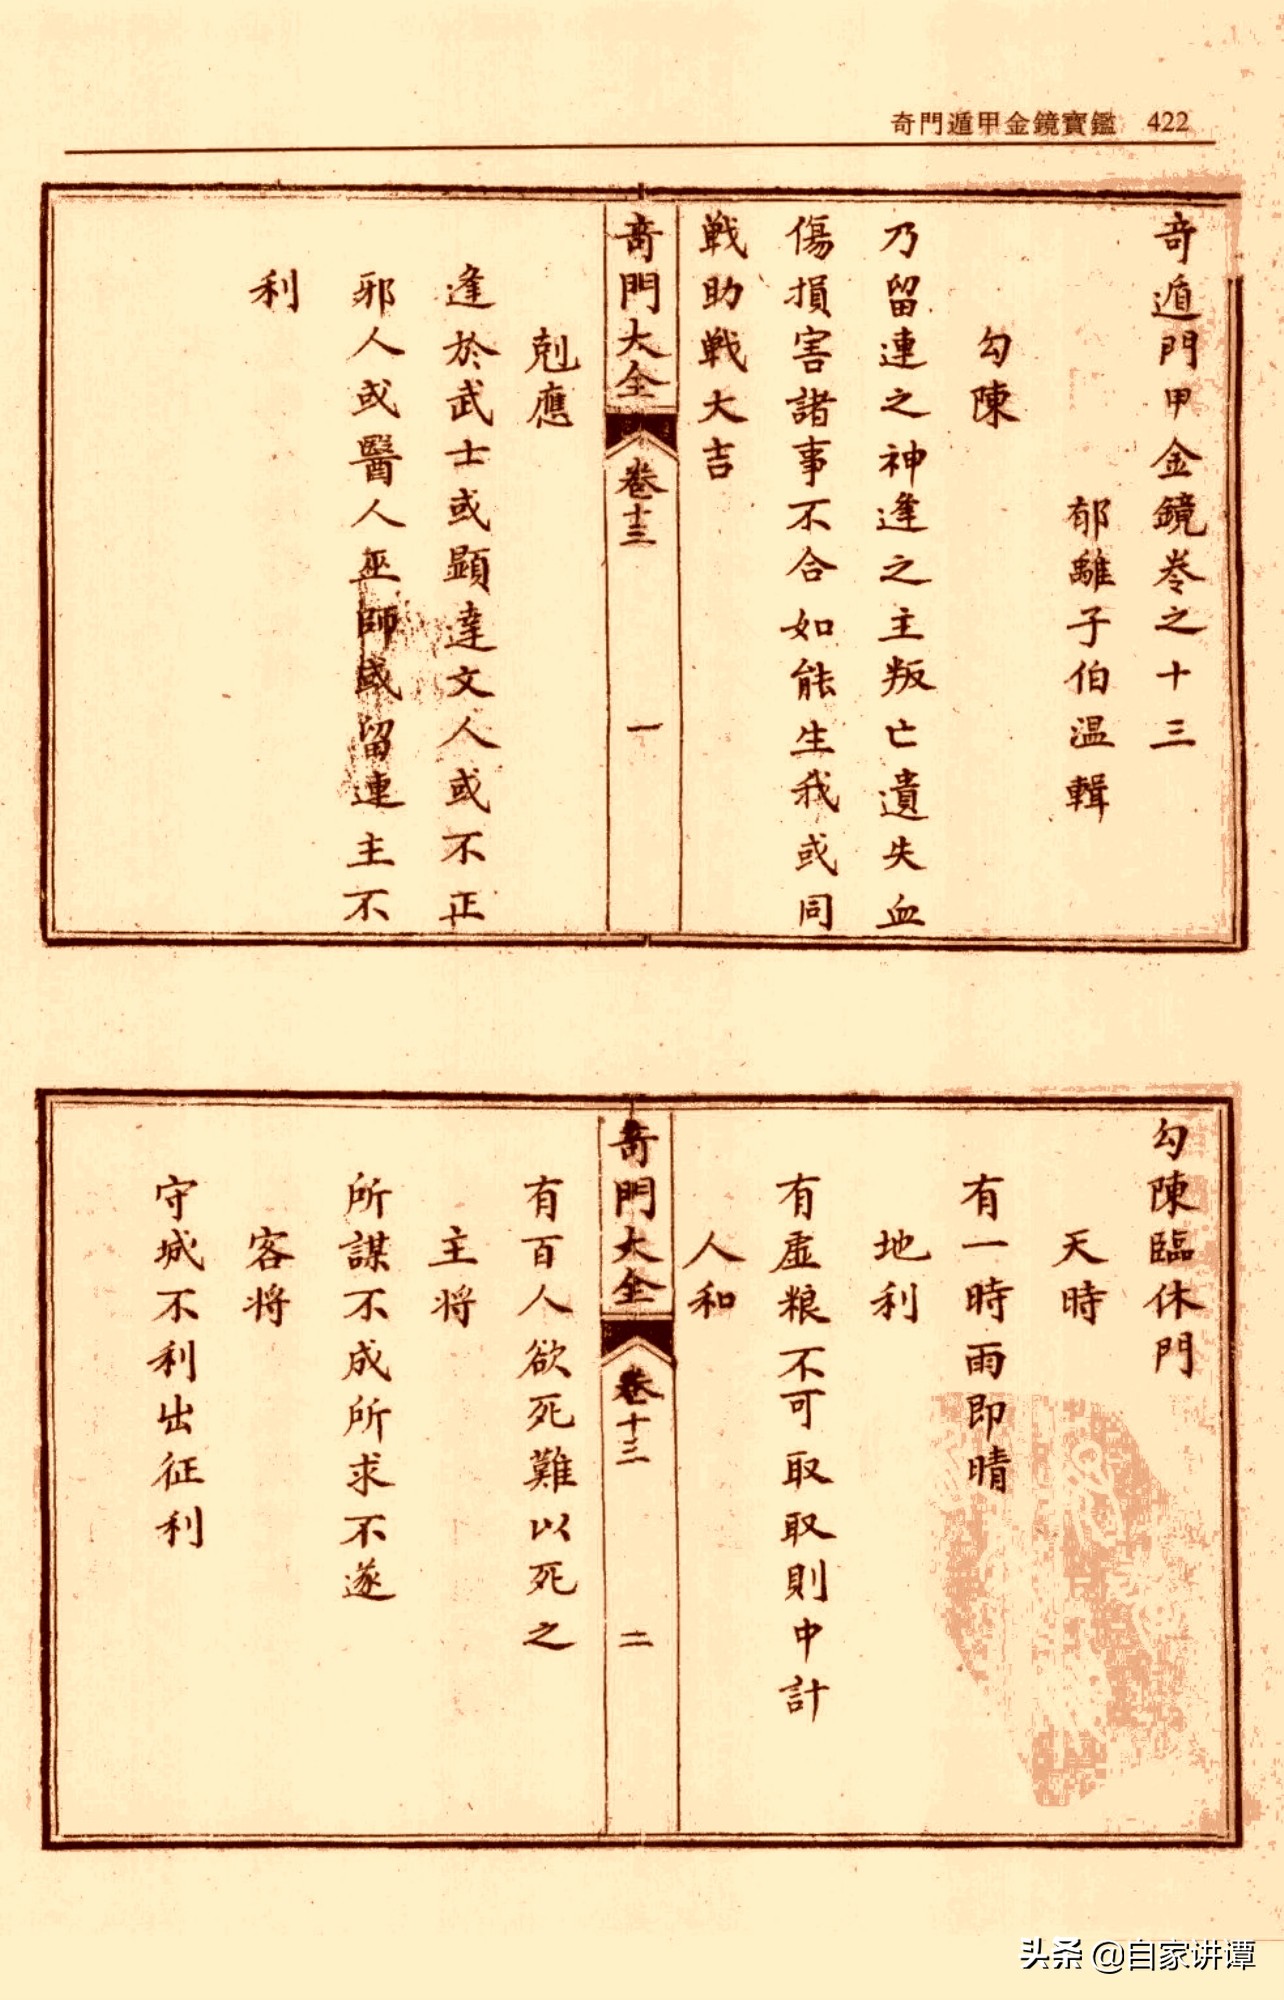 奇門遁甲金鏡寶鑑 422
奇遁門甲金鏡卷之十三
郁離子伯温輯
勾陳
乃留連之神逢之主叛亡遺失血
傷損害諸事不合如能生我或同
戦助戦大吉
奇門大全 卷十三 一
剋應
逢於武士或顯達文人或不正
邪人或醫人巫師或留連主不
利
勾陳臨休門
天時
有一時雨即晴
地利
有虛粮不可取取則中計
人和
奇門大全 卷十三 二
有百人欲死難以死之
主将
所謀不成所求不遂
客将
守城不利出征利
头条 @自家讲谭